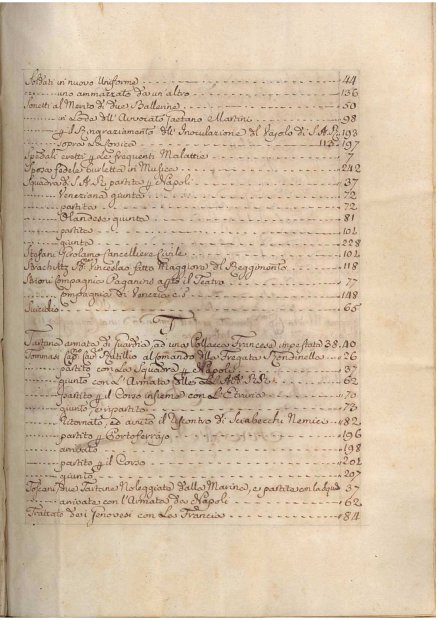 Soldati in nuovo Uniforme 44
uno ammazzato da un altro 136
Sonetti al Merito di due Ballerine 50
in Lode dell'Avvocato Gaetano Martini 98
p il Ringraziamento dell'Inoculazione del Vajolo di S.A.R. 193
sopra La 115. 197
Spedali eretti p Le frequenti Malattie 7
Sposa fedele burletta in Musica 242
Squadra di S.A.R. partita p Napoli 37
Veneziana giunta 72
partita 72
Olandese giunta 81
partita 101
giunta 228
Stefani Girolamo Cancelliere Civile 101
Venceslao fatto Maggiore del Reggimento 118
Compagnia Paganini agto il Teatro 77
Compagnia di Venezia e S. 148
Suicidio 65
T
Tartana armata di Guardia, ad una Pollacca Francese impestata 38. 40
Tommasi Cap. Cav. al Comando della Fregata Rondinella 26
partito con La Squadra p Napoli 37
giunto con L'Armata delle LL. AA. RR. 62
partito p il Corso insieme con L'Etruria 70
giunto, e ripartito 73
Ritornato, ed avuto il Riscontro di Sciabecchi Nemici 182
partito p Portoferrajo 196
arrivato 198
partito p il Corso 201
giunto 207
Toscani, due Tartane Noleggiate dalla Marina, e partite con la Squad. 37
arrivate con l'Armata da Napoli 62
Trattato dei Genovesi con La Francia 84